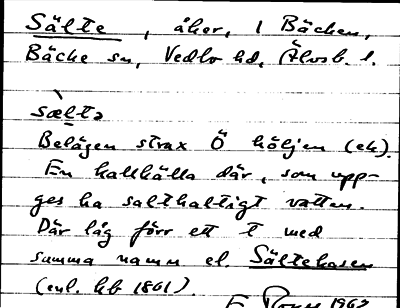 Sälte, åker, 1 Bäcken,
Bäcke sn, Vedbo hd, Älvsb. l.
sælta
Belägen strax Ö höljen (ek).
En kallkälla där, som upp-
ges ha salthaltigt vatten.
Där låg förr ett t med
samma namn el. Sältekasen
(enl. kb 1861).
1962